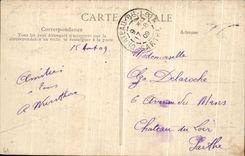 CARTE POSTALE
Correspondance
Tous les pays étrangers n'acceptent pas
la correspondance au recto, se renseigner à la poste
Adresse
15 Août 09
Amitiés
à tous
Mademoiselle
Delaroche
6 Avenue du Mans
Château du Loir
Sarthe